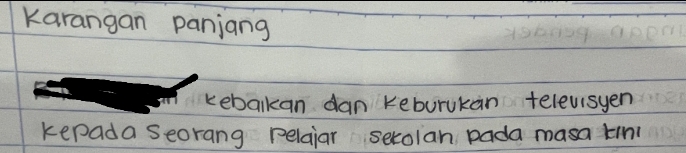 Karangan panjang
kebaikan dan keburukan televisyen
kepada seorang pelajar sekolah pada masa kini